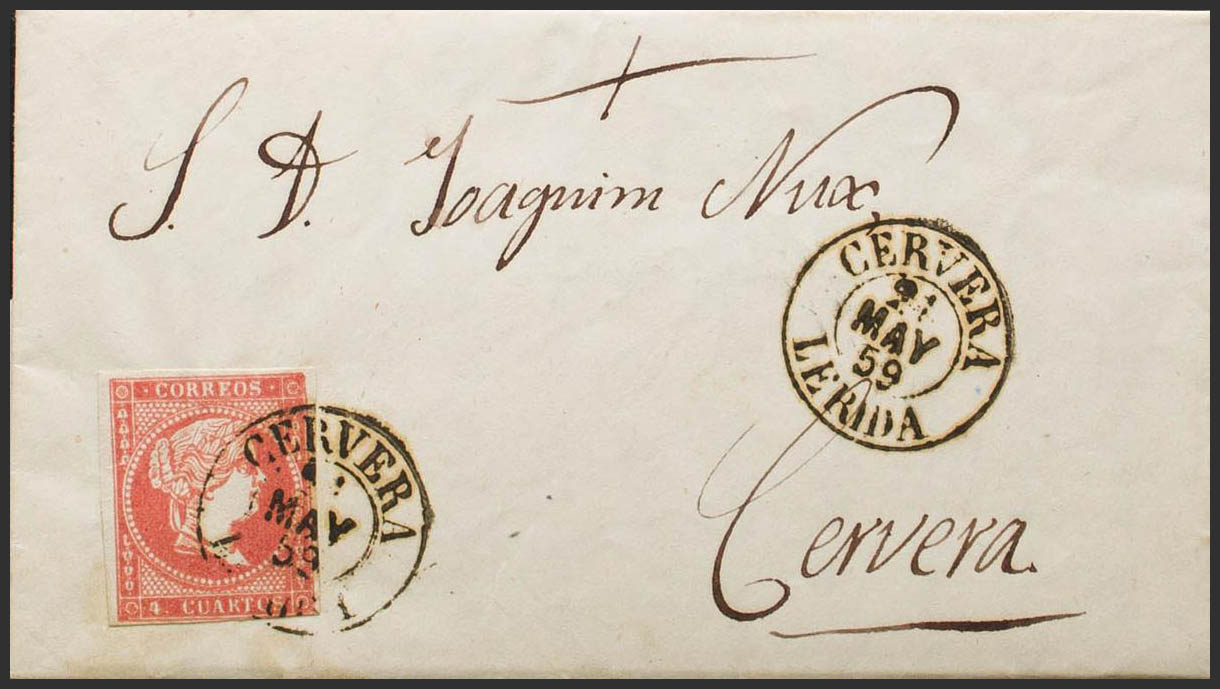 S. D. Joaquim Nux,
CERVERA
MAY
59
LERIDA
CORREOS
4. CUARTOS
CERVERA
MAY
59
Cervera.